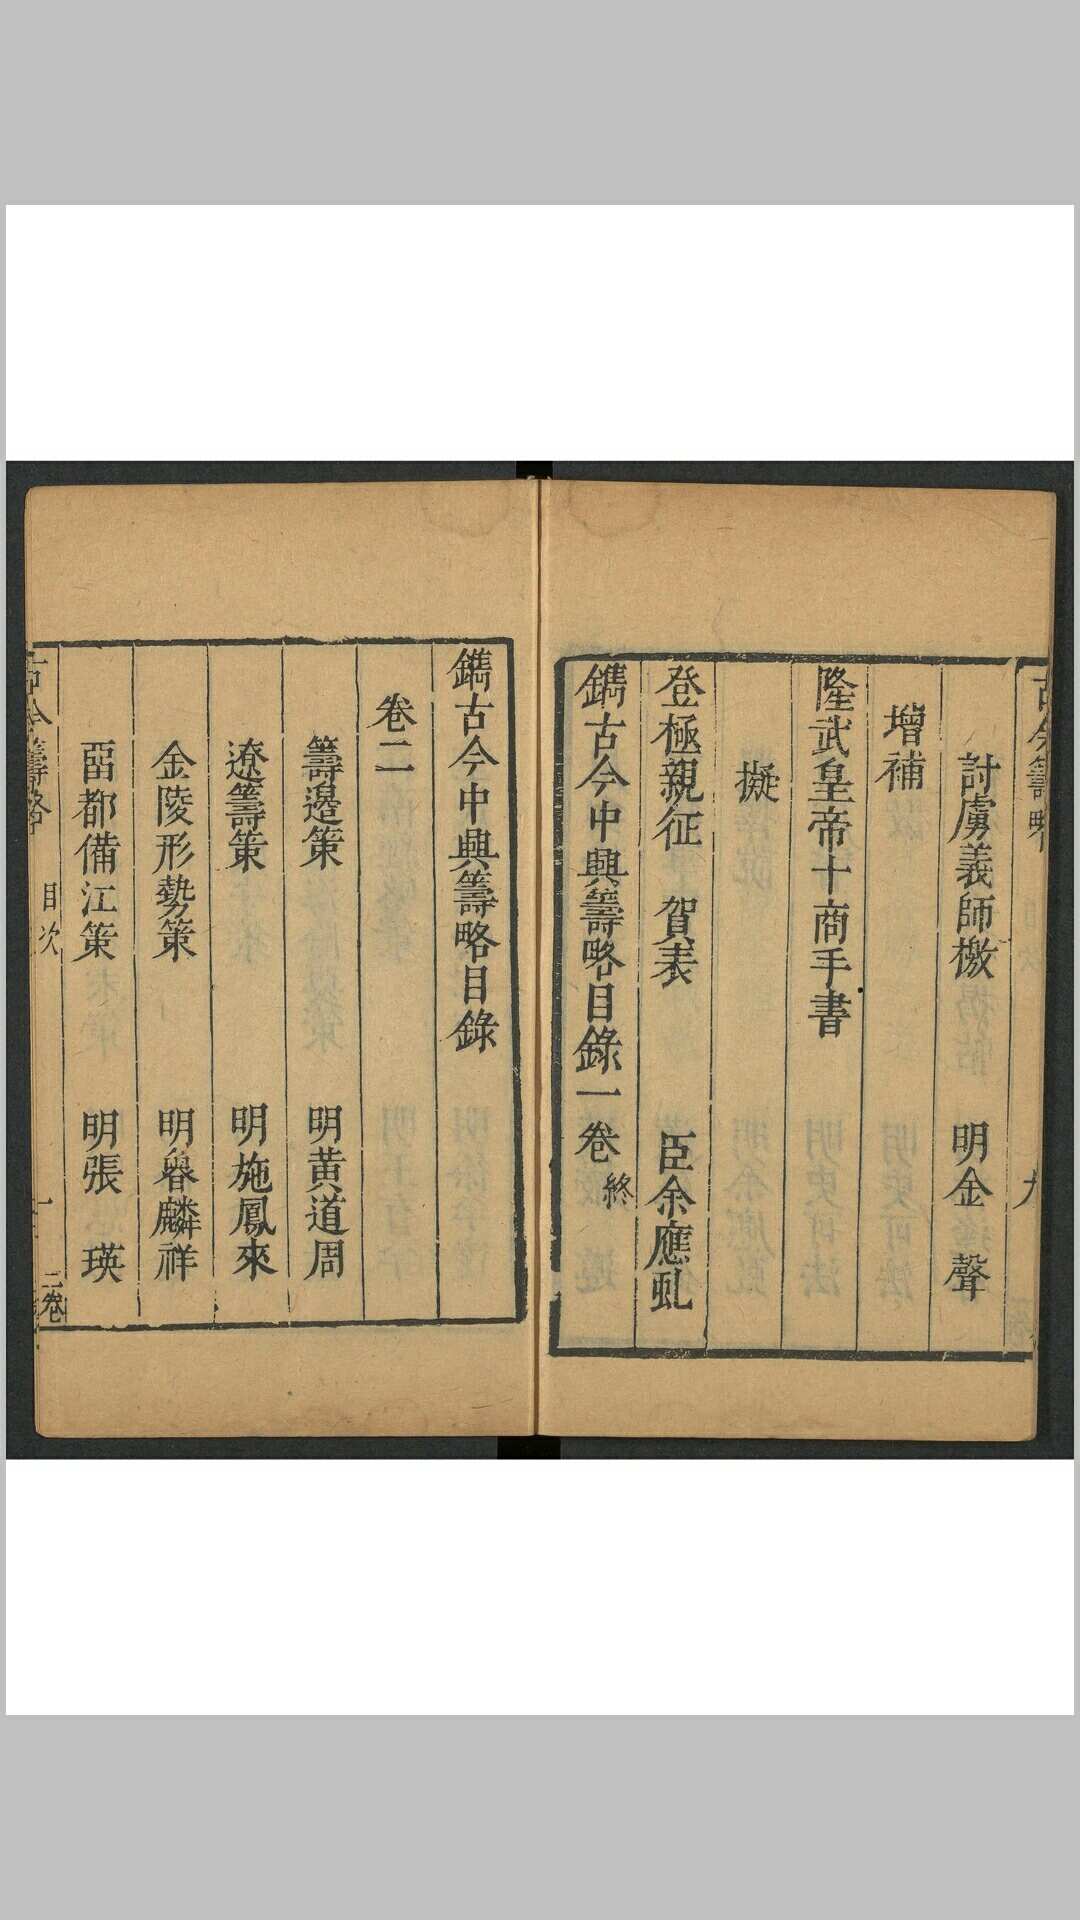 古今籌略 九
討虜義師檄 明金聲
增補
隆武皇帝十商手書
擬
登極親征 賀表 臣余應虬
鐫古今中興籌略目錄一卷終
鐫古今中興籌略目錄
卷二
籌邊策 明黃道周
遼籌策 明施鳳來
金陵形勢策 明魯麟祥
畱都備江策 明張瑛
古今籌略 目次 一 二卷